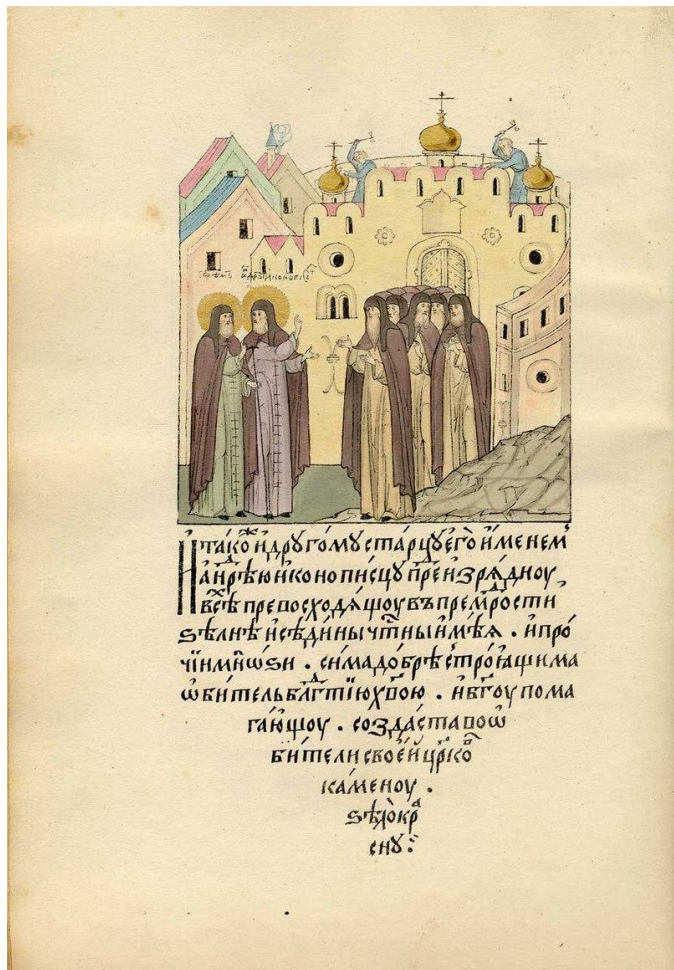 И тако҆́ж и҆ дрꙋго́мꙋ ста́рцꙋ е҆гѡ̀ и҆́менемъ
а҆ндрѣ́ю и҆конопи́сцꙋ преи҆зрѧ́дноу
всѣ́х превосходѧ́щоу въ премⷣрости
ѕѣ́лнѣ и҆ сѣди́ны чⷭ҇тны и҆мѣ́ѧ . и҆ про
чїи мно́ѕи . си́ма до́брѣ стро́ѧщима
ѡ҆би́тель блгⷣтїю хв҃ою . и҆ бг҃оу пома
га́ющоу . созда́ста во ѡ҆
би́тели свое́й цр҃ковь
ка́меноу .
ѕѣлѡ̀ кра
снꙋ :